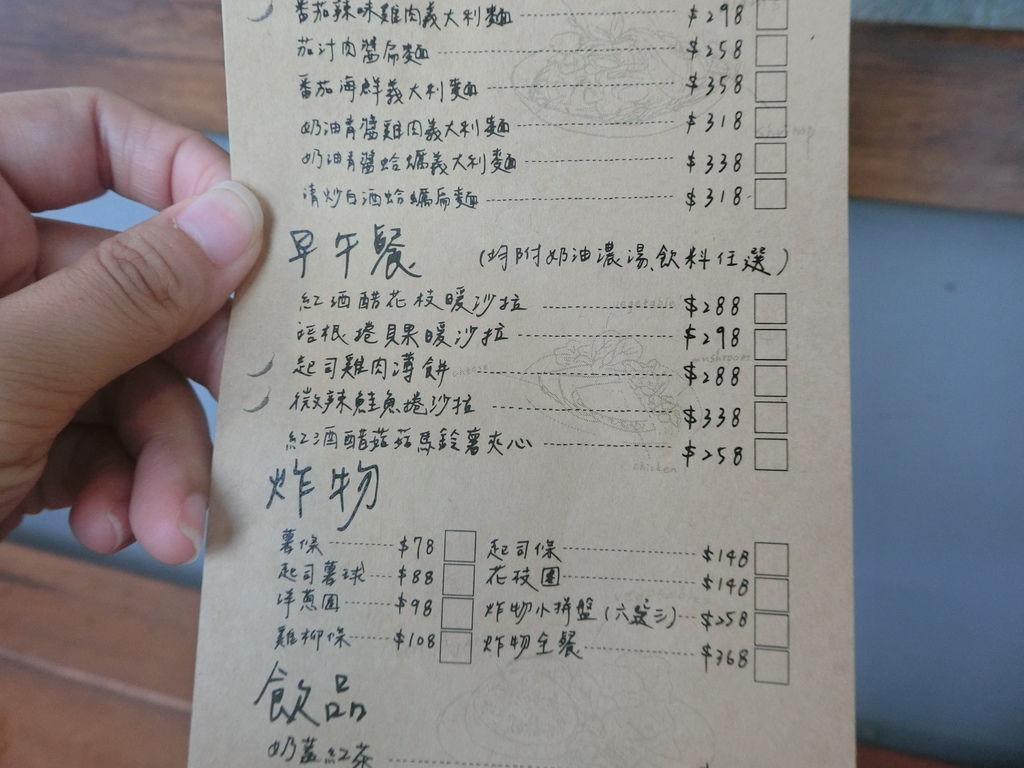 番茄辣味雞肉義大利麵 $298
茄汁肉醬扁麵 $258
番茄海鮮義大利麵 $358
奶油青醬雞肉義大利麵 $318
奶油青醬蛤蠣義大利麵 $338
清炒白酒蛤蠣扁麵 $318
早午餐 (均附奶油濃湯、飲料任選)
紅酒醋花枝暖沙拉 $288
培根捲貝果暖沙拉 $298
起司雞肉薄餅 $288
微辣鮭魚捲沙拉 $338
紅酒醋菇菇馬鈴薯夾心 $258
炸物
薯條 $78 起司條 $148
起司薯球 $88 花枝圈 $148
洋蔥圈 $98 炸物小拼盤(六選三) $258
雞柳條 $108 炸物全餐 $368
飲品
奶蓋紅茶
shrimp
vegetable
mushroom
cheese
chicken